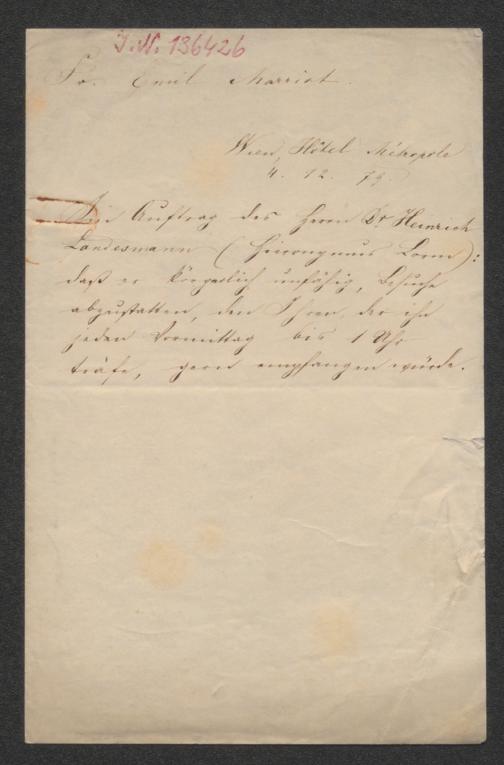 I.N. 136426
Sr. Emil Marriot.
Wien, Hôtel Métropole
4. 12. 79.
Im Auftrag des Herrn Dr Heinrich
Landesmann (Hieronymus Lorm):
daß er körperlich unfähig, Besuche
abzustatten, den Ihren, der ihn
jeden Vormittag bis 1 Uhr
träfe, gern empfangen würde.